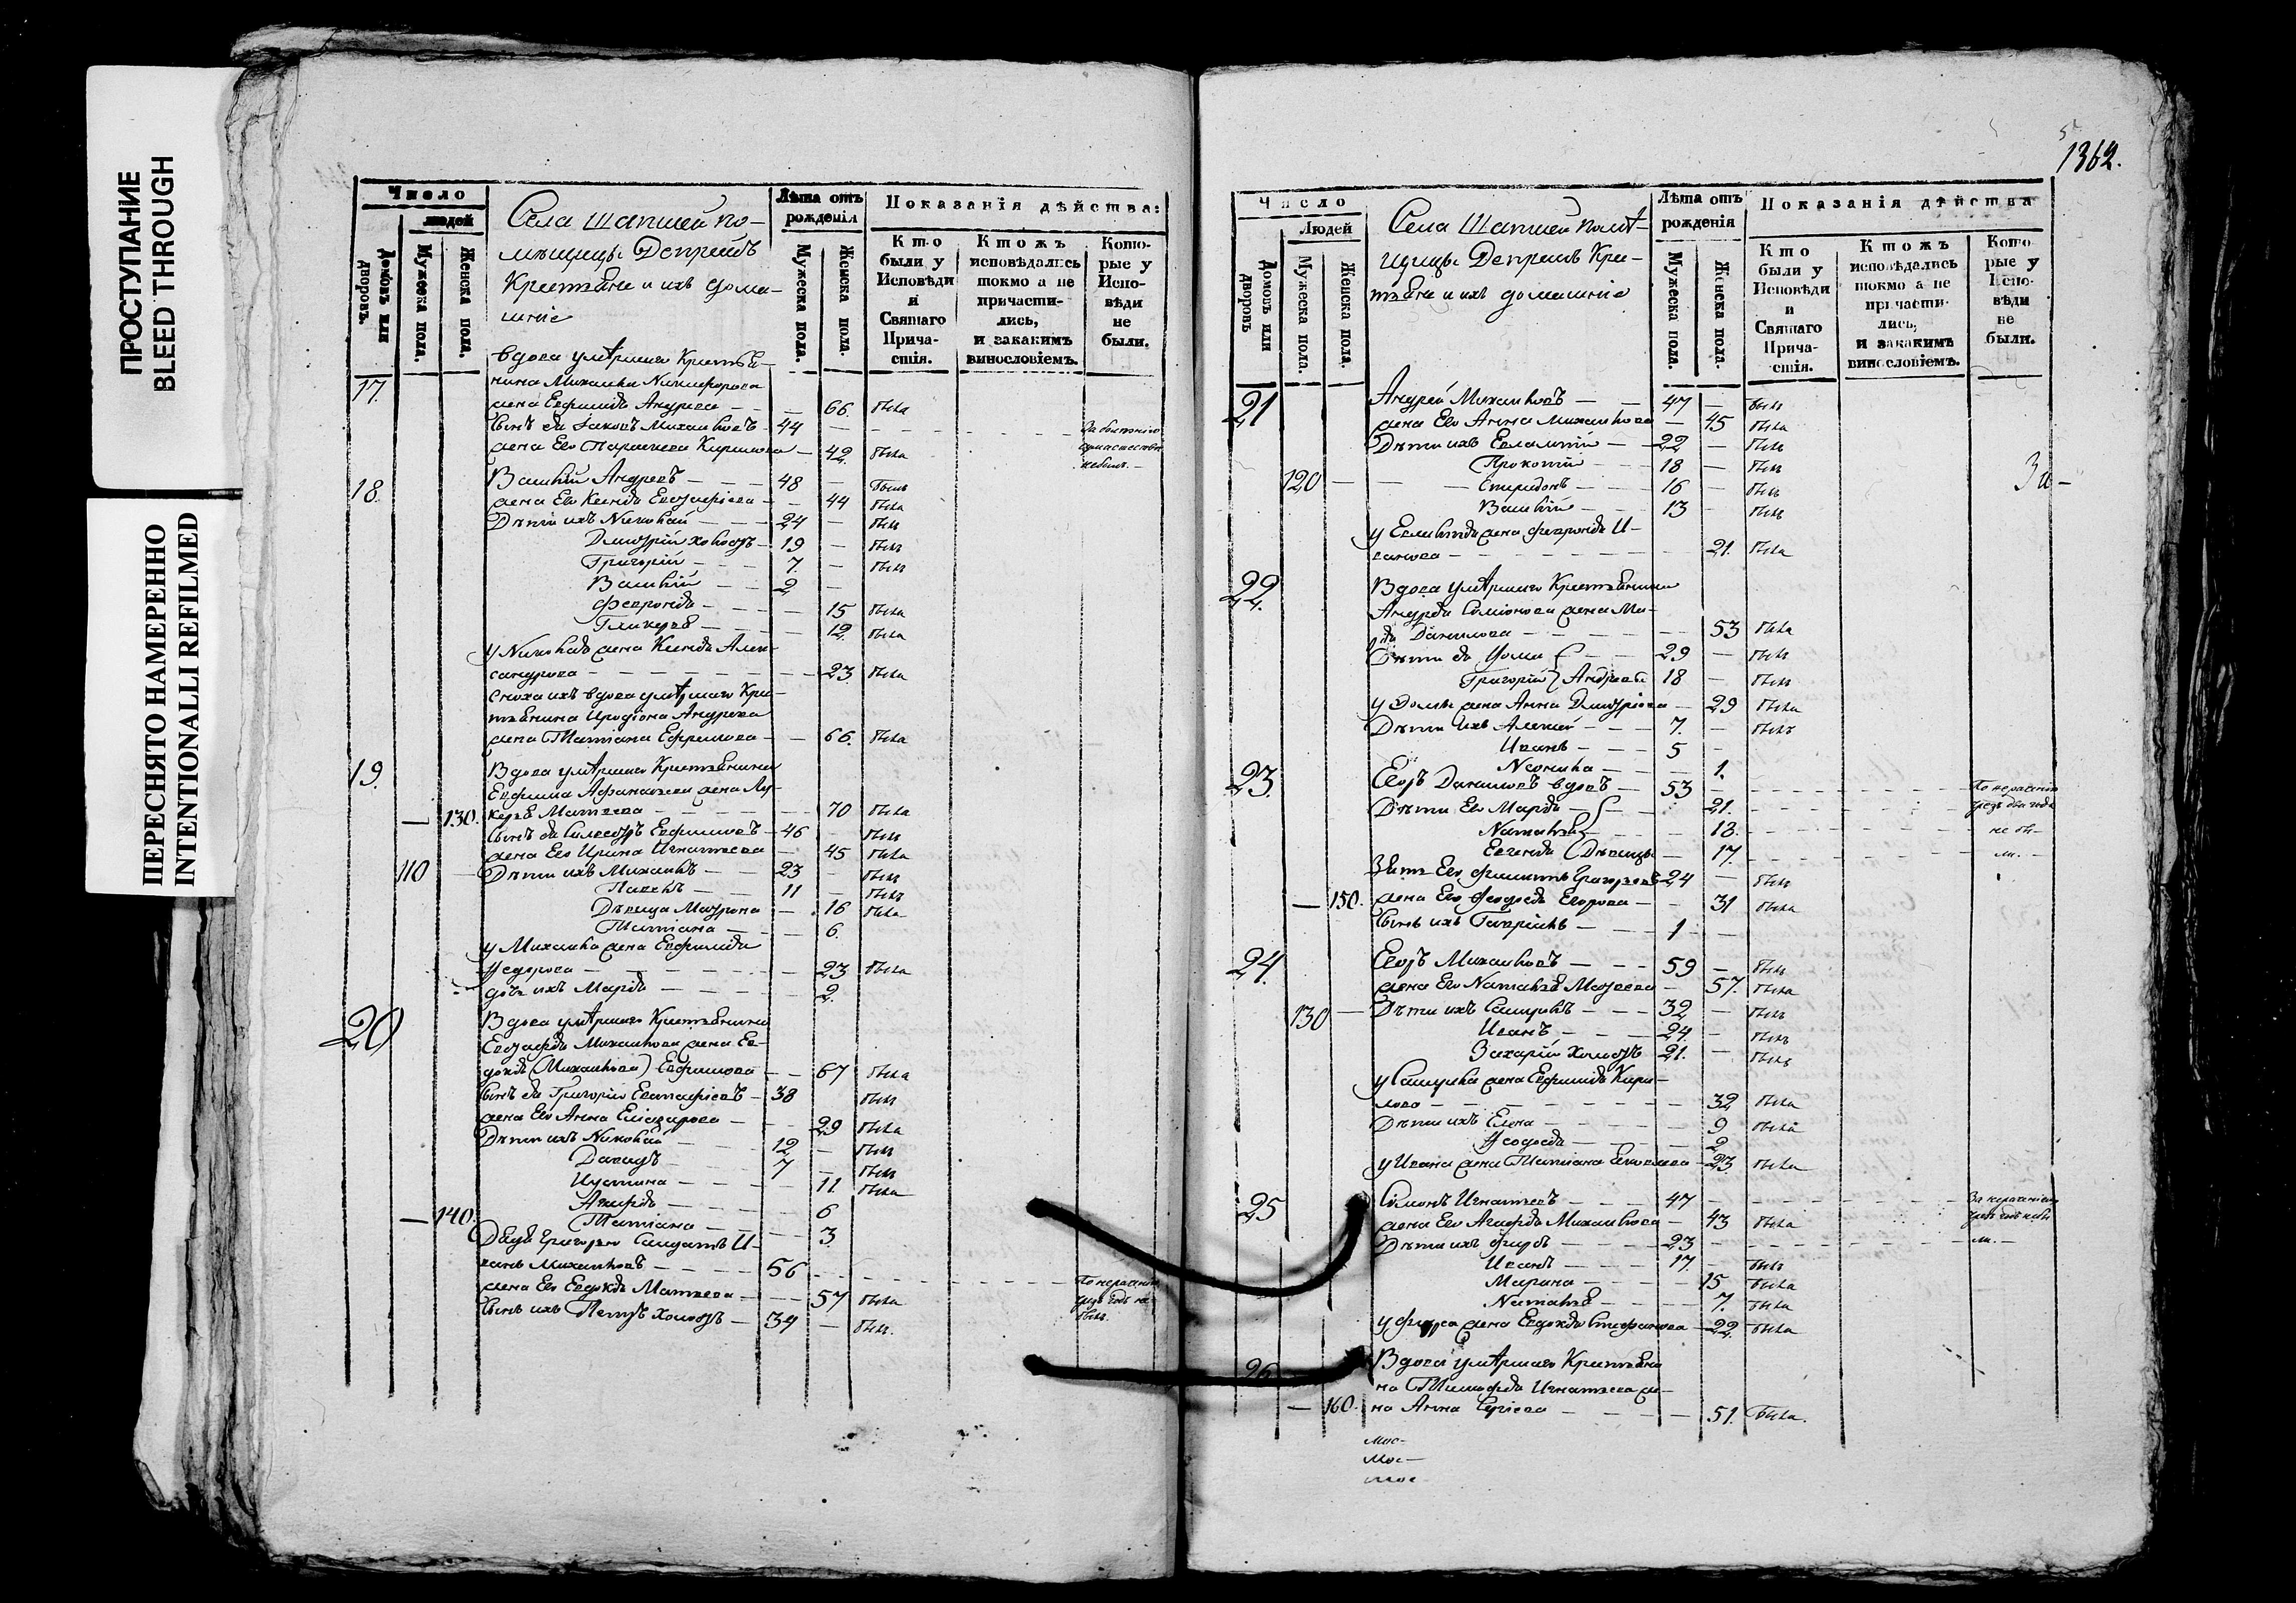 ПРОСТУПАНИЕ
BLEED THROUGH
ПЕРЕСНЯТО НАМЕРЕННО
INTENTIONALLI REFILMED
Число
людей
Домовъ или дворовъ.
Мужеска пола,
Женска пола,
Села Шапшей по-
мѣщицы Депрейсъ
Крестьяне и ихъ дома-
шніе
Лѣта отъ рожденія
Мужеска пола.
Женска пола.
Показанія дѣйства:
Кто были у Исповѣди и Святаго Прича-стія.
Ктожъ исповѣдались токмо а не причасти-лись, и закакимъ винословіемъ.
Кото-рые у Испо-вѣди не были.
вдова умершаго Крестья-
17. нина Михаила Никифорова
жена Евфимія Андреева — 66. была
сынъ ея Іаковъ Михаиловъ 44
жена Его Параскева Кирилова — 42. была
не былъ.
18. Василій Андреевъ — 48 — былъ
жена Его Ксенія Евстафіева — 44 была
Дѣти ихъ Николай — 24 — былъ
Дмитрій холостъ 19 — былъ
Григорій — 7. — былъ
Василій — 2
Февронія — 15 была
Гликерья — 12. была
у Николая жена Ксенія Алек-
сандрова — 23. была
Сноха ихъ вдова умершаго Кре-
стьянина Иродіона Андреева
жена Татіана Ефремова — 66. была
19. Вдова умершаго Крестьянина
Евфима Афанасьева жена Лу-
— 130. керья Матвеева — 70 была
сынъ ея Силвестръ Евфимовъ 46 — былъ
жена Его Ирина Игнатьева — 45 была
110 — Дѣти ихъ Михаилъ — 23 — былъ
Павелъ — 11 — былъ
Дѣвица Матрона — 16 была
Татіана — 6.
у Михаила жена Евфимія
Федорова — 23 была
дочь ихъ Марія — 2.
20 Вдова умершаго Крестьянина
Евстафія Михаилова жена Ев-
докія (Михаилова) Евфимова — 67 была
сынъ ея Григорій Евстафіевъ 38 былъ
жена Его Анна Еліазарова — 29 была
Дѣти ихъ Николай — 12 — былъ
Давидъ 7 — былъ
Иустина — 11. была
Агафія — 6
— 140. Татіана — 3.
Дядя Григорью Солдатъ И-
ванъ Михаиловъ — 56
жена Его Евдокія Матвеева — 57 была
былъ.
сынъ ихъ Петръ холостъ — 34 — былъ.
1362.
Число
Людей
Домовъ или дворовъ
Мужеска пола.
Женска пола.
Села Шапшей помѣ-
щицы Депрейсъ Кре-
стьяне и ихъ домашніе
Лѣта отъ рожденія
Мужеска пола.
Женска пола.
Показанія дѣйства
Кто были у Исповѣди и Святаго Прича-стія.
Ктожъ исповѣдались токмо а не причасти-лись, и закакимъ винословіемъ.
Кото-рые у Испо-вѣди не были.
21 Андрей Михаиловъ — 47 — былъ
жена Его Анна Михаилова — 45 была
Дѣти ихъ Евлампій — 22 — былъ
Прокопій — 18 — былъ
120 — Спиридонъ — 16 — былъ
Василій — 13 — былъ
у Евлампія жена Февронія И-
ванова — 21. была
22. Вдова умершаго Крестьянина
Андрея Симіонова жена Ма-
рія Данилова — 53 была
Дѣти ея Фома — 29 — былъ
Григорій Андреевы 18 — былъ
у Фомы жена Анна Дмитріева — 29 была
Дѣти ихъ Алексей — 7. — былъ
Иванъ — 5 —
Неонила — 1.
23. Егоръ Даниловъ вдовъ — 53 —
Дѣти Его Марія — 21.
Наталья — 18. не бы-
Евгенія Дѣвицы — 17. ли. —
Зять Его Филиппъ Григорьевъ 24 — былъ
— 150. жена Его Феодосья Егорова — 31 была
сынъ ихъ Гавріилъ — 1 —
24. Егоръ Михаиловъ — 59 — былъ
жена Его Наталья Матвеева — 57. была
130 — Дѣти ихъ Самуилъ — 32 — былъ
Иванъ — 24. — былъ
Захарій Холостъ 21. — былъ
у Самуила жена Евфимія Кири-
лова — 32 была
Дѣти ихъ Елена — 9 была
Феодосья — 2
у Ивана жена Татіана — 23. была
25 Симонъ Игнатьевъ — 47 —
жена Его Агафія Михаилова — 43 была
Дѣти ихъ — 23 — ли. —
Иванъ — 17. — былъ
Марина — 15 была
Наталья — 7. была
жена Евдокія Стефанова — 22. была
26 Вдова умершаго Крестьяни-
на Тимофея Игнатьева же-
— 160. на Анна Сергіева — 51. была.